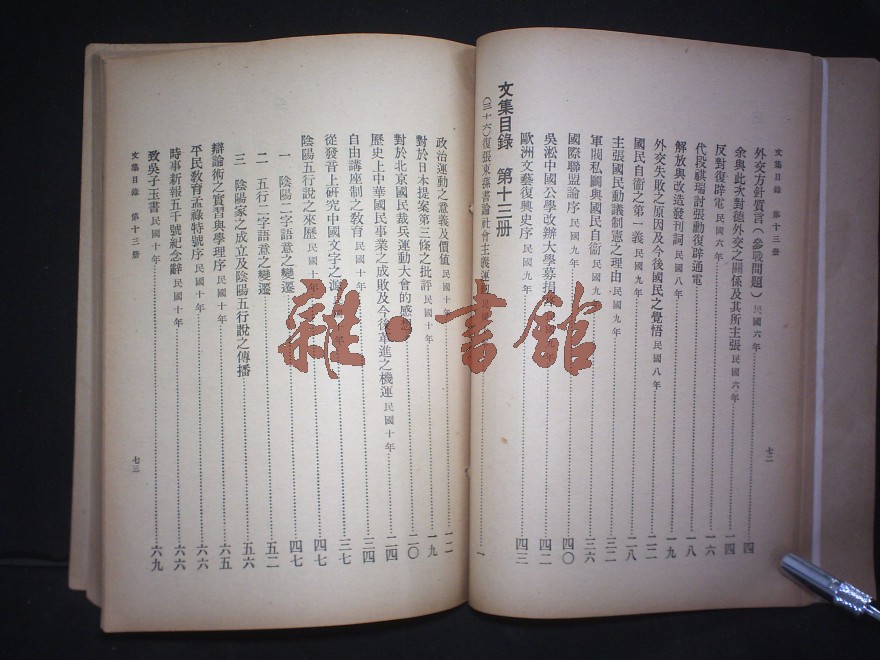 文集目錄　第十三册
七二
外交方針質言(參戰問題)民國六年 四
余與此次對德外交之關係及其所主張民國六年 一四
反對復辟電民國六年 一六
代段祺瑞討張勳復辟通電 一八
解放與改造發刊詞民國八年 一九
外交失敗之原因及今後國民之覺悟民國八年 二二
國民自衞之第一義民國九年 二八
主張國民動議制憲之理由民國九年 三二
軍閥私鬬與國民自衞民國九年 三六
國際聯盟論序民國九年 四〇
吳淞中國公學改辦大學募捐 年 四二
歐洲文藝復興史序民國九年 四三
文集目錄　第十三册
(三十六)復張東蓀書論社會主義運動 一
政治運動之意義及價値民國十年 一二
對於日本提案第三條之批評民國十年 一九
對於北京國民裁兵運動大會的感想 二〇
歷史上中華國民事業之成敗及今後革進之機運民國十年 二四
自由講座制之敎育民國十年 三四
從發音上硏究中國文字之源 年 三七
陰陽五行說之來歷民國十年 四七
一　陰陽二字語意之變遷 四七
二　五行二字語意之變遷 五二
三　陰陽家之成立及陰陽五行說之傳播 五六
辯論術之實習與學理序民國十年 六五
平民敎育孟祿特號序民國十年 六六
時事新報五千號紀念辭民國十年 六六
致吳子玉書民國十年 六九
文集目錄　第十三册
七三
雜·書館